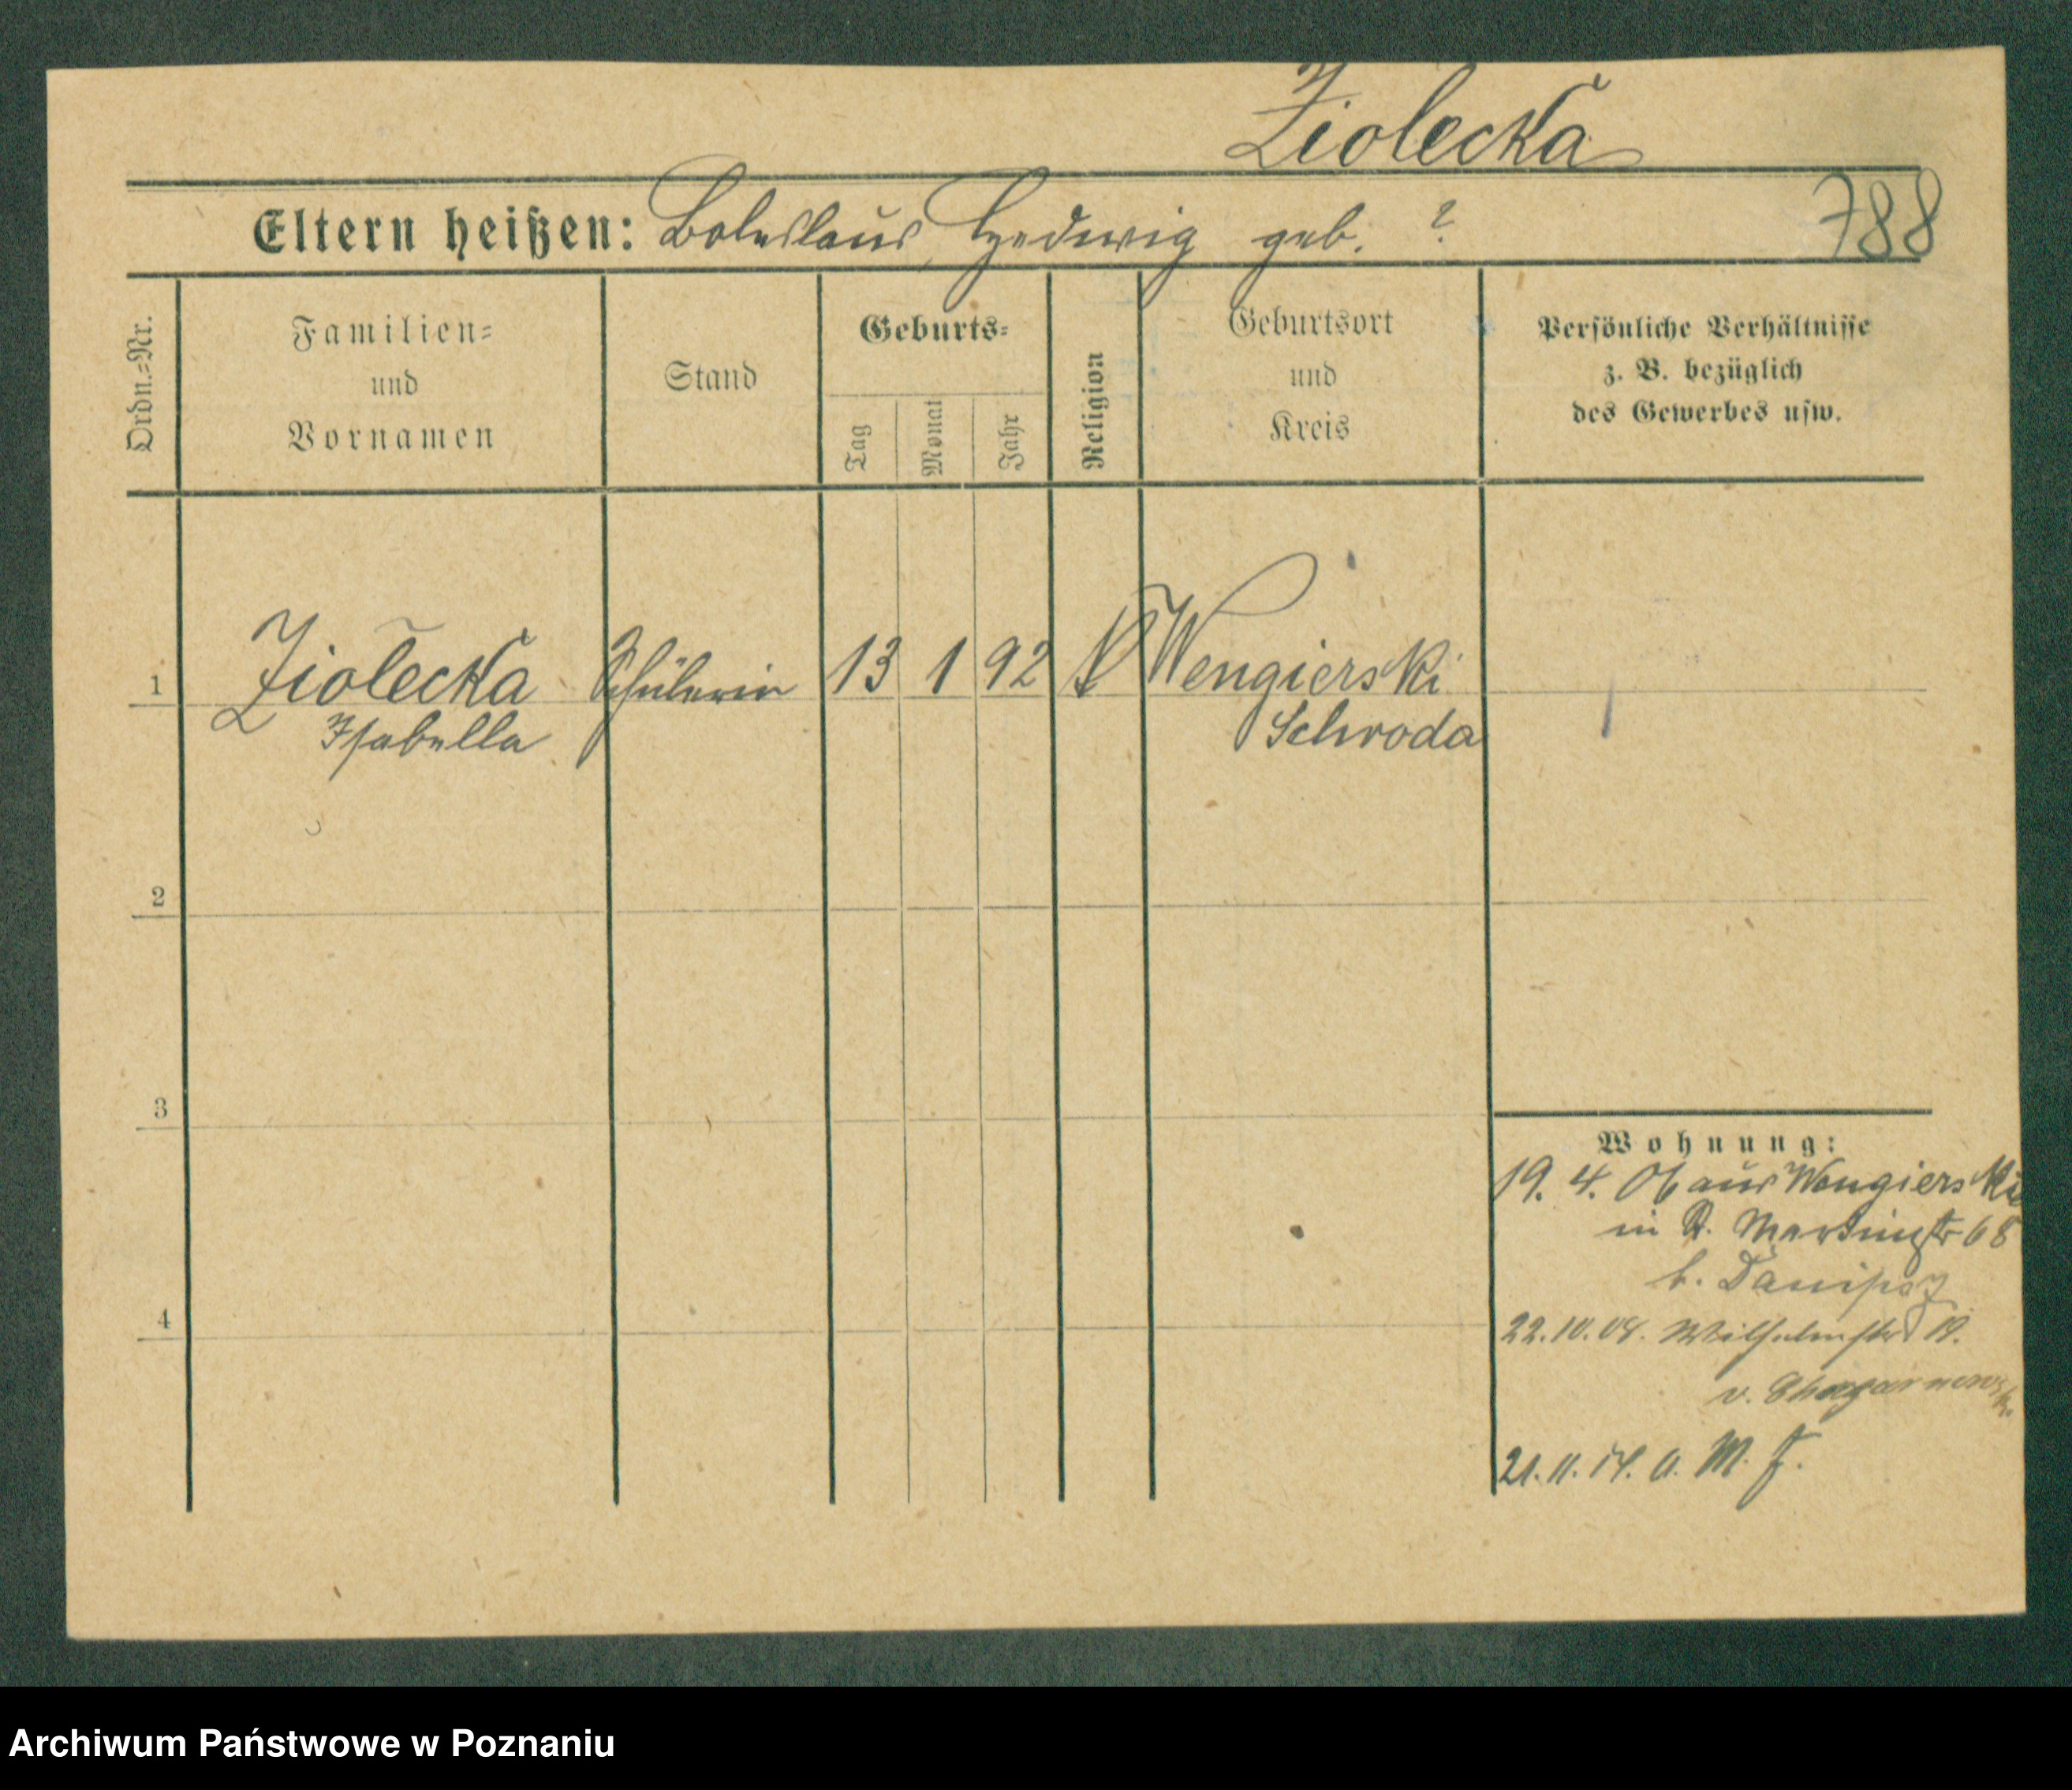 Ziolecka
Eltern heißen: Boleslaus, Hedwig geb. ?
788
Ordn.-Nr.
Familien-
und
Vornamen
Stand
Geburts-
Tag
Monat
Jahr
Religion
Geburtsort
und
Kreis
Persönliche Verhältnisse
z. B. bezüglich
des Gewerbes usw.
1 Ziolecka Schülerin 13 1 92 Wengierski
Isabella Schroda
2
3
4
Wohnung:
19. 4. 06 aus Wengierski
in St. Martinstr 68
b.
22.10.08. Wilhelmstr 19.
v.
21. 11. 14. a. M. F.
Archiwum Państwowe w Poznaniu